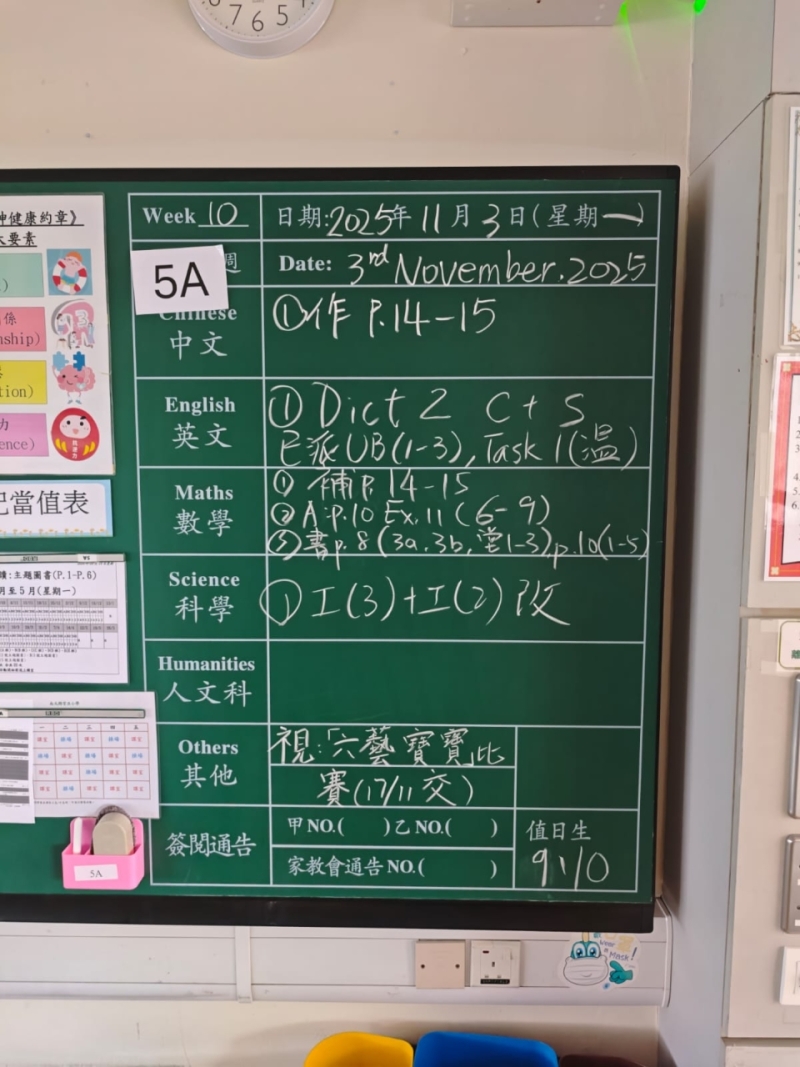 7 6 5
神健康約章》
大要素
係
nship)
tion)
力
ence)
記當值表
讀:主題圖書(P.1-P.6)
月至5月(星期一)
一 二 三 四 五
5A
Week 10
日期:2025年11月3日(星期一)
5A
週
Date: 3rd November.2025
Chinese
中文
①作 P.14-15
English
英文
① Dict 2 C+S
已派UB(1-3), Task 1(溫)
Maths
數學
① 補P.14-15
② A:p.10 Ex.11(6-9)
③ 書p.8(3a,3b,堂1-3)p.10(1-5)
Science
科學
① 工(3)+工(2)改
Humanities
人文科
Others
其他
視:「六藝寶寶」比
賽(17/11交)
簽閱通告
甲NO.( )乙NO.( )
家教會通告NO.( )
值日生
9,10
Wear a Mask!